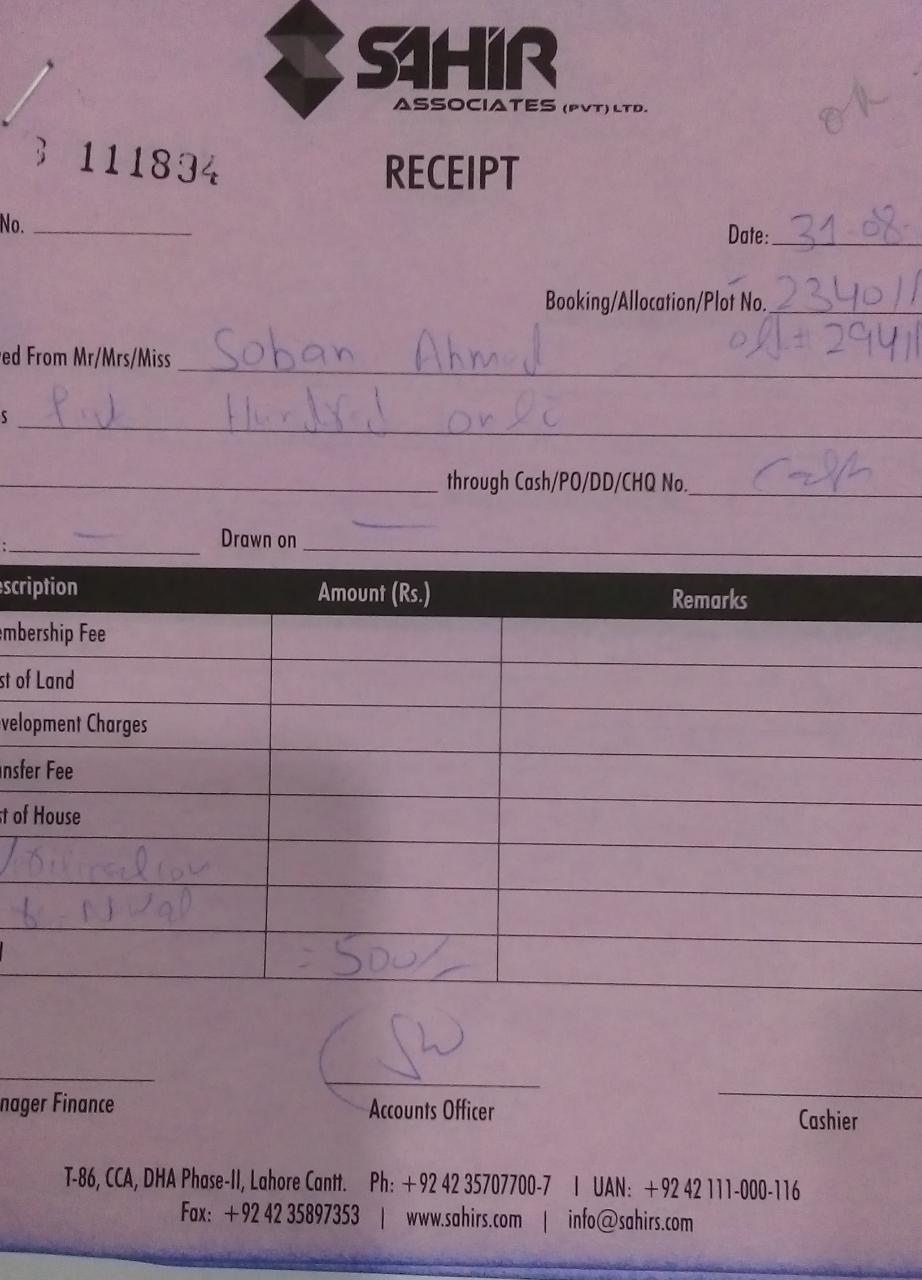 SAHIR
ASSOCIATES (PVT) LTD.
111834
RECEIPT
No.
Date: 31-08-
Booking/Allocation/Plot No. 23401/
ed From Mr/Mrs/Miss Soban Ahmad
29411
s Hundred
through Cash/PO/DD/CHQ No. Cash
: —
Drawn on —
escription Amount (Rs.) Remarks
embership Fee
st of Land
evelopment Charges
ansfer Fee
st of House
= 500/-
nager Finance
Accounts Officer
Cashier
T-86, CCA, DHA Phase-II, Lahore Cantt. Ph: +92 42 35707700-7 | UAN: +92 42 111-000-116
Fax: +92 42 35897353 | www.sahirs.com | info@sahirs.com